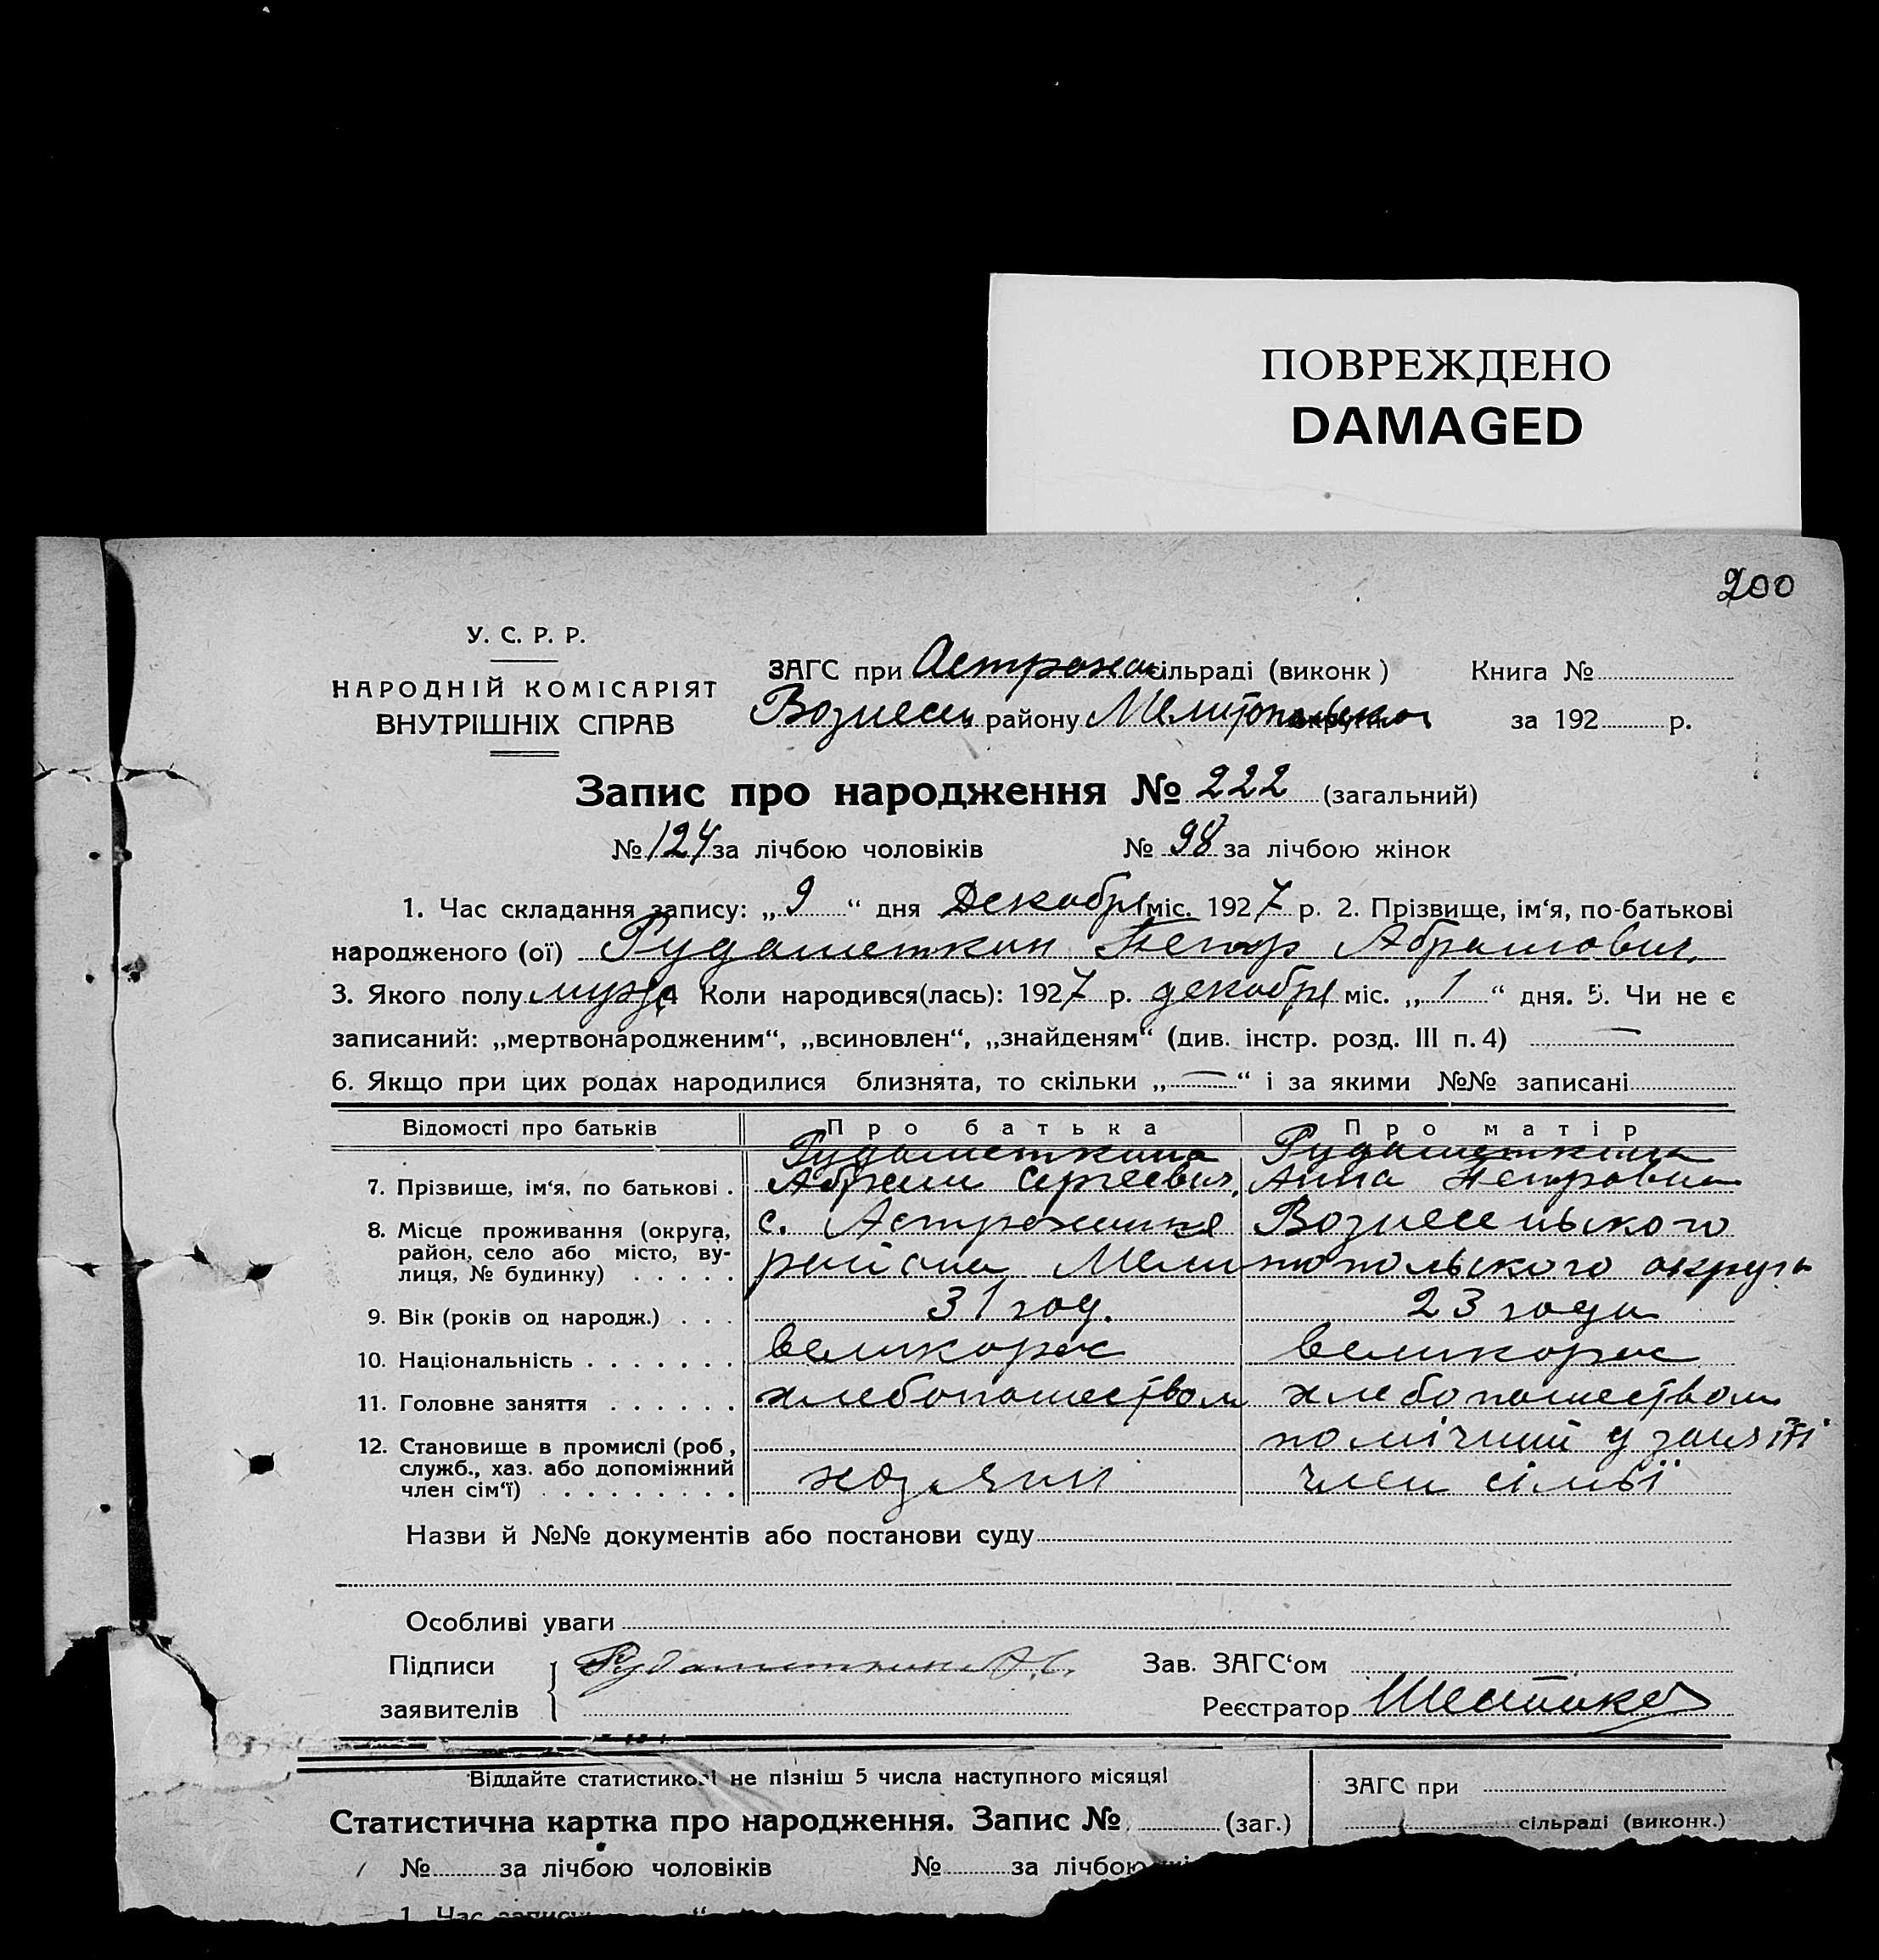 ПОВРЕЖДЕНО
DAMAGED
200
У. С. Р. Р.
НАРОДНІЙ КОМІСАРІЯТ
ВНУТРІШНІХ СПРАВ
ЗАГС при Астрахан сільраді (виконк ) Книга №
Вознесен району Мелитопольской округи за 192 р.
Запис про народження № 222 (загальний)
№ 124 за лічбою чоловіків № 98 за лічбою жінок
1. Час складання запису: „ 9 “ дня Декабря міс. 1927 р. 2. Прізвище, ім‘я, по-батькові
народженого (ої) Рудаметкин Петр Абрамович.
3. Якого полу муж 4 Коли народився(лась): 1927 р. декабря міс. „ 1 “ дня. 5. Чи не є
записаний: „мертвонародженим“, „всиновлен“, „знайденям“ (див. інстр. розд. III п. 4) —
6. Якщо при цих родах народилися близнята, то скільки „—“ і за якими №№ записані
Відомості про батьків Про батька Про матір
Рудаметкина Рудаметкина
7. Прізвище, ім‘я, по батькові . Абрам Сергеевич, Анна Петровна
8. Місце проживання (округа, район, село або місто, ву- лиця, № будинку) с. Астраханка Вознесенського
района Мелитопольского округи
9. Вік (років од народж.) 31 год. 23 года
10. Національність великорос великорос
11. Головне заняття хлебопашеством хлебопашеством
12. Становище в промислі (роб, служб., хаз. або допоміжний член сім‘ї) хозяин помічний у занятті
член сімьї
Назви й №№ документів або постанови суду
Особливі уваги
Підписи Рудаметкин А. С. Зав. ЗАГС‘ом
заявителів Реєстратор
Віддайте статистикові не пізніш 5 числа наступного місяця! ЗАГС при
Статистична картка про народження. Запис № (заг.) сільраді (виконк.)
№ за лічбою чоловіків № за лічбою
1. Час запису